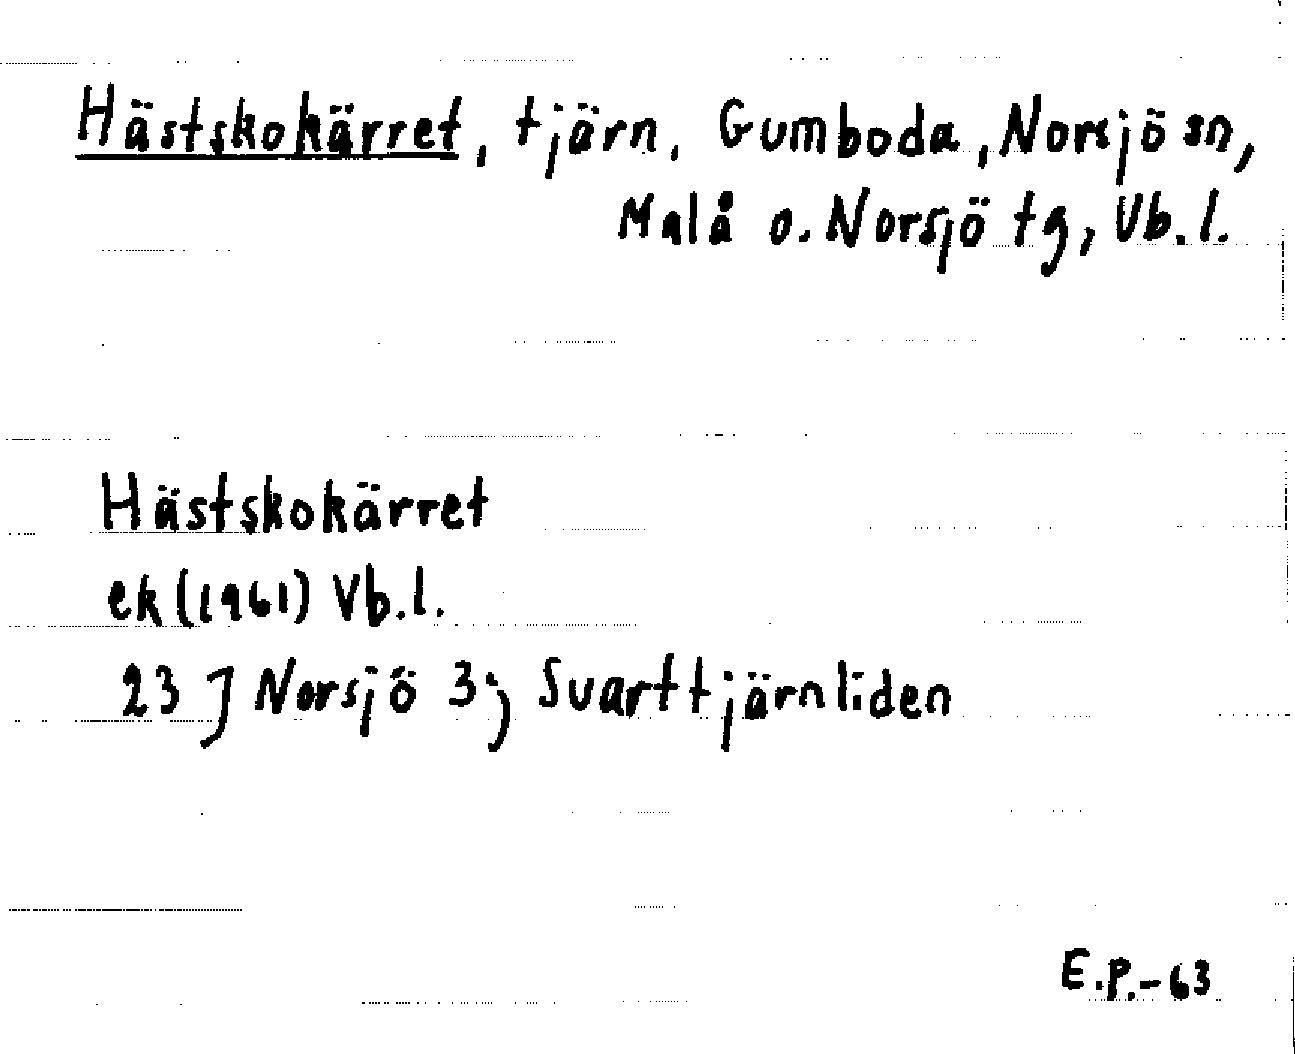 Hästskokärret, tjärn, Gumboda, Norsjö sn,
Malå o. Norsjö tg, Vb. l.
Hästskokärret
ek (1961) Vb. l.
23 J Norsjö 3j Svarttjärnliden
E.P.-63